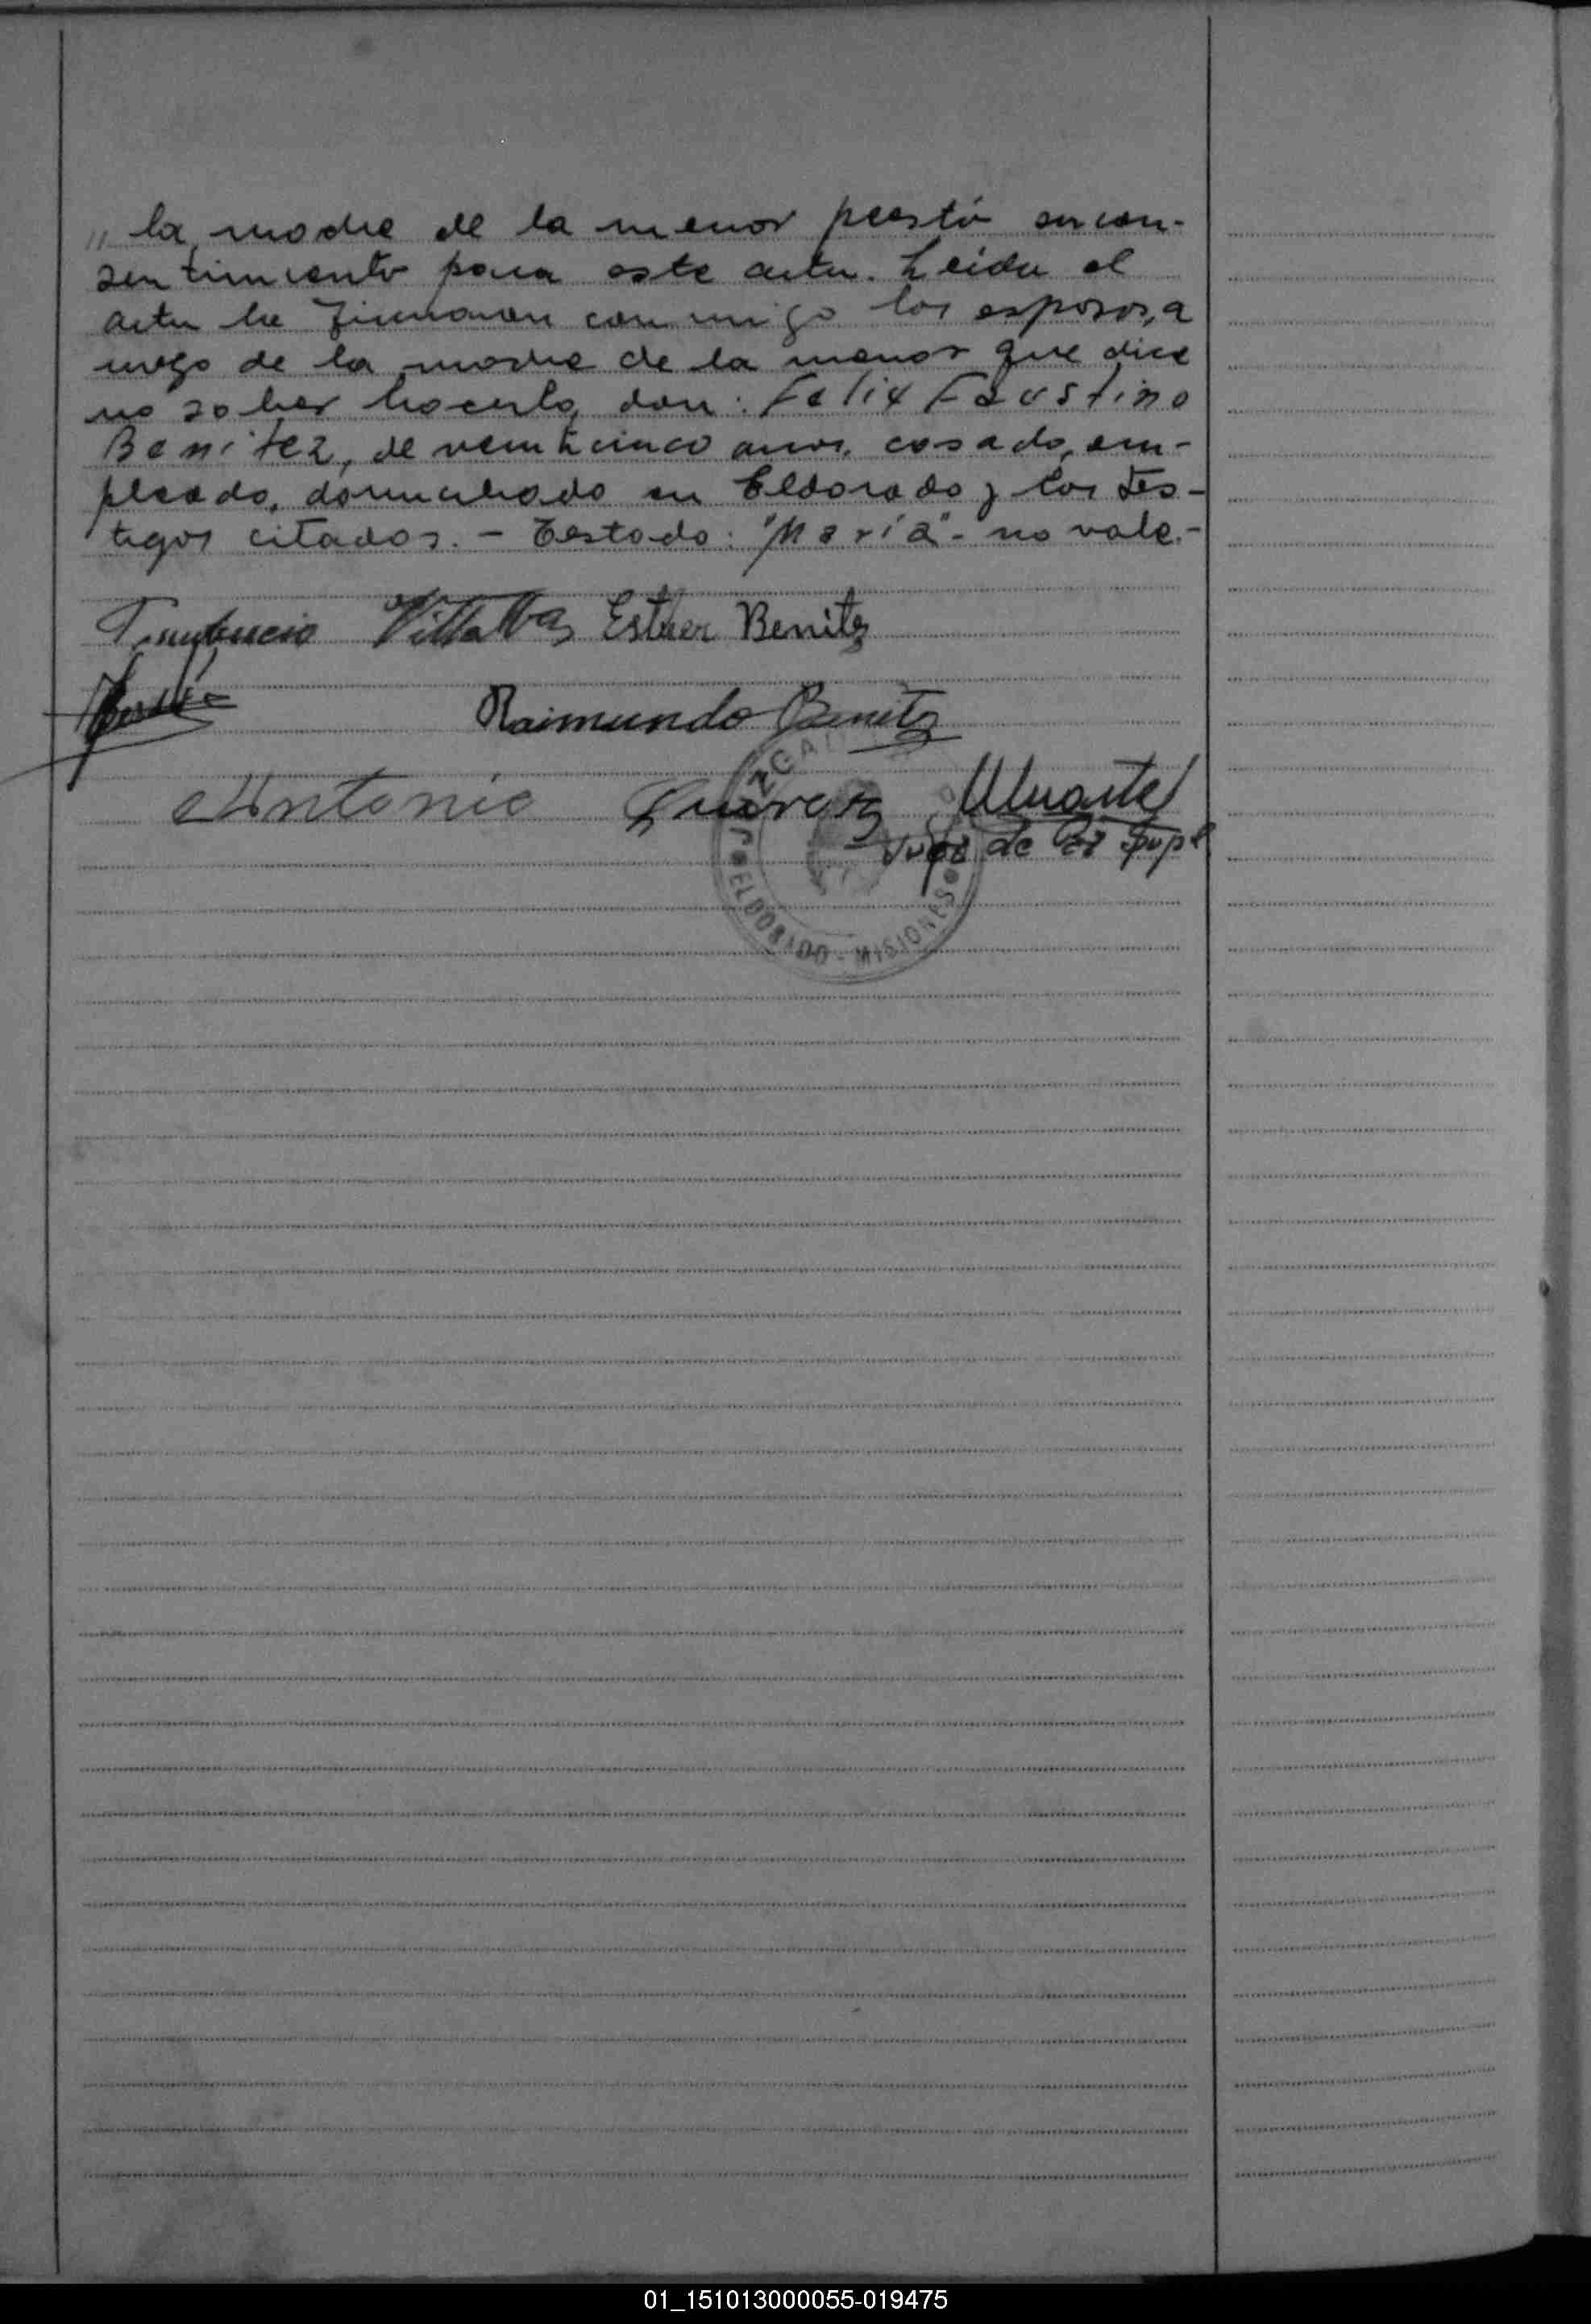 " la madre de la menor prestó su con-
sentimiento para este acto. Leida el
acta la firmaron conmigo los esposos, a
ruego de la madre de la menor que dice
no saber hacerlo, don: Felix Faustino
Benitez, de veinticinco años, casado, em-
pleado, domiciliado en Eldorado y los tes-
tigos citados. - Testado: "María" - no vale.-
Villalva Esther Benitez
Raimundo Benitez
Antonio
Juez de Paz Supl
JUZGADO
ELDORADO - MISIONES
01_151013000055-019475